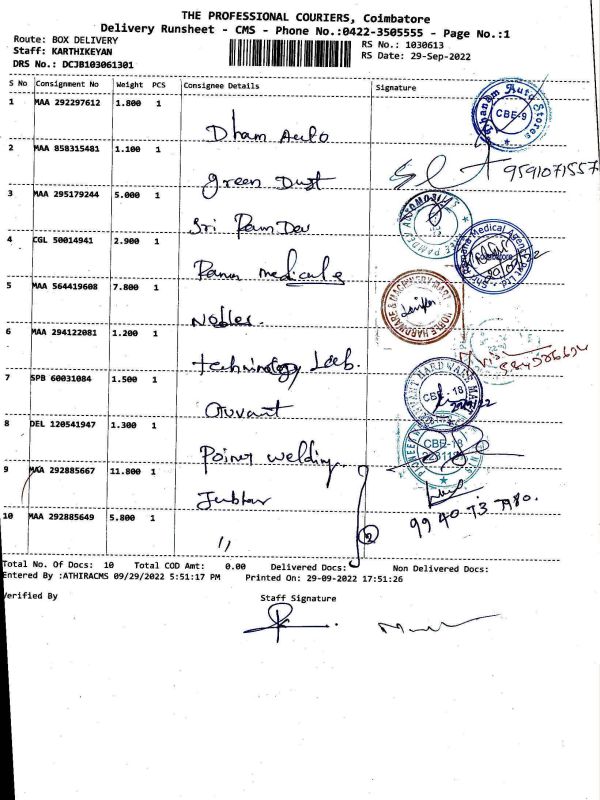 THE PROFESSIONAL COURIERS, Coimbatore
Delivery Runsheet - CMS - Phone No.:0422-3505555 - Page No.:1
Route: BOX DELIVERY
Staff: KARTHIKEYAN
DRS No.: DCJB103061301
RS No.: 1030613
RS Date: 29-Sep-2022
S No Consignment No Weight PCS Consignee Details Signature
1 MAA 292297612 1.800 1
Dham Auto
CBE-9
Auto Stores
2 MAA 858315481 1.100 1
green Dust
9591071557
3 MAA 295179244 5.000 1
Sri Ram Dev
4 CGL 50014941 2.900 1
Medical Agency
5 MAA 564419608 7.800 1
Nobles
NOBLE HARDWARE & MACHINERY MART
6 MAA 294122081 1.200 1
technology Lab.
7 SPB 60031084 1.500 1
CBE - 18
8 DEL 120541947 1.300 1
welding
CBE-18
9 MAA 292885667 11.800 1
2
10 MAA 292885649 5.800 1
11
Total No. Of Docs: 10 Total COD Amt: 0.00 Delivered Docs: Non Delivered Docs:
Entered By :ATHIRACMS 09/29/2022 5:51:17 PM Printed On: 29-09-2022 17:51:26
Verified By Staff Signature